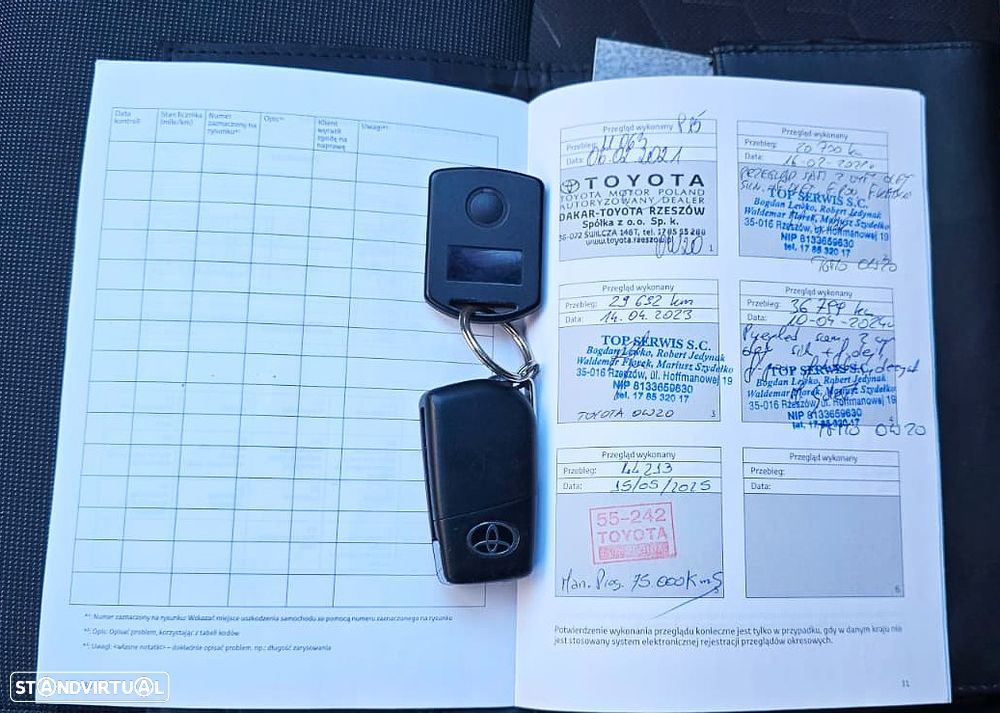 Data kontroli
Stan licznika (mile/km)
Numer zaznaczony na rysunku*¹
Opis*²
Klient wyraził zgodę na naprawę
Uwagi*³
*¹: Numer zaznaczony na rysunku: Wskazać miejsce uszkodzenia samochodu za pomocą numeru zaznaczonego na rysunku
*²: Opis: Opisać problem, korzystając z tabeli kodów
*³: Uwagi: <własne notatki> – dokładnie opisać problem, np.: długość zarysowania
Przegląd wykonany
Przebieg: 11 063
Data: 06.02.2021
TOYOTA
TOYOTA MOTOR POLAND
AUTORYZOWANY DEALER
DAKAR-TOYOTA RZESZÓW
Spółka z o.o. Sp. k.
36-072 ŚWILCZA 146T, tel. 17 85 55 200
www.toyota.rzeszow
0W20
1
Przegląd wykonany
Przebieg: 20 750 km
Data: 16-02-
TOP SERWIS S.C.
Bogdan Lewko, Robert Jedynak
Waldemar Florek, Mariusz Szydełko
35-016 Rzeszów, ul. Hoffmanowej 19
NIP 8133659630
tel. 17 85 320 17
0W20
Przegląd wykonany
Przebieg: 29 692 km
Data: 14.04.2023
TOP SERWIS S.C.
Bogdan Lewko, Robert Jedynak
Waldemar Florek, Mariusz Szydełko
35-016 Rzeszów, ul. Hoffmanowej 19
NIP 8133659630
tel. 17 85 320 17
TOYOTA 0W20
3
Przegląd wykonany
Przebieg: 36 799 km
Data: 10-04-2024
TOP SERWIS S.C.
Bogdan Lewko, Robert Jedynak
Waldemar Florek, Mariusz Szydełko
35-016 Rzeszów, ul. Hoffmanowej 19
NIP 8133659630
tel. 17 85 320 17
0W20
Przegląd wykonany
Przebieg: 44 213
Data: 15/05/2025
55-242
TOYOTA
Man. Prog. 75.000Kms
5
Przegląd wykonany
Przebieg:
Data:
6
Potwierdzenie wykonania przeglądu konieczne jest tylko w przypadku, gdy w danym kraju nie
jest stosowany system elektronicznej rejestracji przeglądów okresowych.
11
STANDVIRTUAL